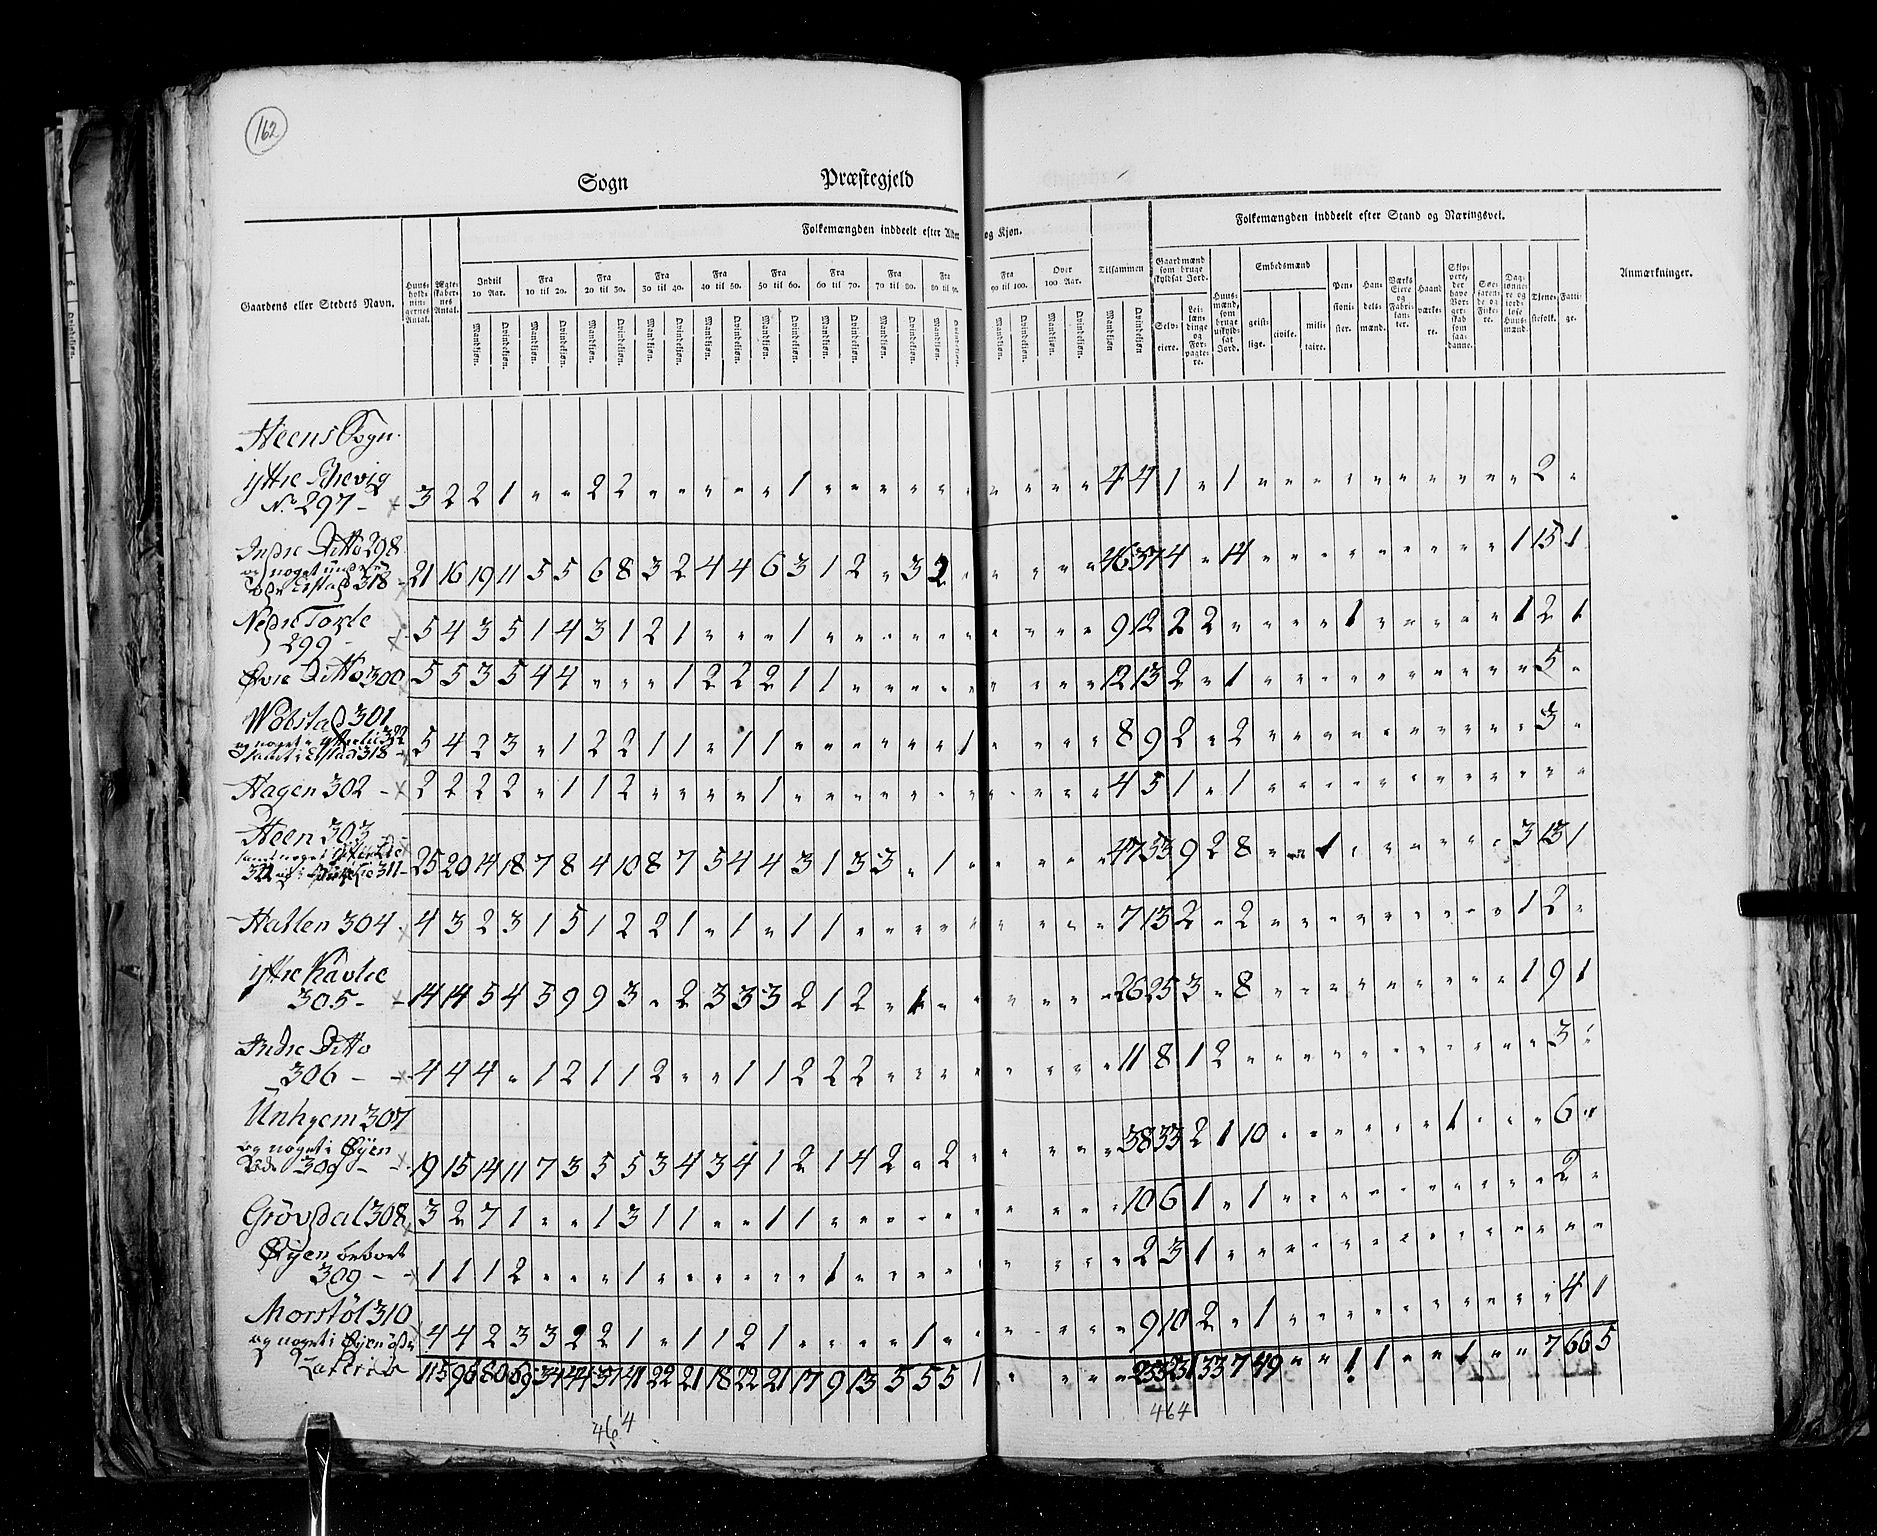 162
Sogn Præstegjeld
Folkemængden inddeelt efter Alder og Kjøn.
Folkemængden inddeelt efter Stand og Næringsvei.
Gaardens eller Stedets Navn.
Huusholdningernes Antal.
Ægteskabernes Antal.
Indtil 10 Aar. Fra 10 til 20. Fra 20 til 30. Fra 30 til 40. Fra 40 til 50. Fra 50 til 60. Fra 60 til 70. Fra 70 til 80. Fra 80 til 90. Fra 90 til 100. Over 100 Aar. Tilsammen
Mandkjøn. Qvindekjøn.
Gaardmænd som bruge skyldsat Jord.
Selveiere.
Leilændinge og Forpagtere.
Huusmænd, som bruge uskyldsat Jord.
Embedsmænd
geistlige. civile. militaire.
Pensionister.
Handelsmænd.
Værks Eiere og Fabrikanter.
Haandværkere.
Skippere, der have Borgerskab som saadanne.
Søefarende og Fiskere.
Daglønnere og jordløse Huusmænd.
Tjenestefolk.
Fattige.
Anmærkninger.
Heens Sogn.
ÿttre
No 297 - 3 2 2 1 " " 2 2 " " " " " 1 " " " " " " " " " " 4 4 1 " 1 " " " " " " " " " " 2 "
Indre Ditto 298
og noget under
318 21 16 19 11 5 5 6 8 3 2 4 4 6 3 1 2 " 3 2 " " " " " 46 37 4 " 14 " " " " " " " " " 1 15 1
Nedre
299 5 4 3 5 1 4 3 1 2 1 " " " 1 " " " " " " " " " " 9 12 2 2 " " " " 1 " " " " " 1 2 1
Øvre Ditto 300 5 5 3 5 4 4 " " " 1 2 2 2 1 1 " " " " " " " " " 12 13 2 " 1 " " " " " " " " " " 5 "
301
322
318 5 4 2 3 " 1 2 2 1 1 " 1 1 " " " " " " 1 " " " " 8 9 2 " 2 " " " " " " " " " " 3 "
Hagen 302 - 2 2 2 2 " 1 1 2 " " " " " 1 " " " " " " " " " " 4 5 1 " 1 " " " " " " " " " " " "
Heen 303
311 - 25 20 14 18 7 8 4 10 8 7 5 4 4 3 1 3 3 " 1 " " " " " 47 53 9 2 8 " " 1 " " " " " " 3 13 1
Hatlen 304 4 3 2 3 1 5 1 2 2 1 " 1 " 1 1 " " " " " " " " " 7 13 2 " 2 " " " " " " " " " 1 2 "
ÿttre Kavlie
305 - 14 14 5 4 5 9 9 3 " 2 3 3 3 2 1 2 " 1 " " " " " " 26 25 3 " 8 " " " " " " " " " 1 9 1
Indre Ditto
306 - 4 4 4 " 1 2 1 1 2 " " 1 1 2 2 2 " " " " " " " " 11 8 1 2 " " " " " " " " " " " 3 "
Unhjem 307
og noget i Øÿen
309 - 19 15 14 11 7 3 5 5 3 4 3 4 1 2 1 4 2 " 2 " " " " " 38 33 2 1 10 " " " " " " 1 " " " 6 "
Grövdal 308 3 2 7 1 " " 1 3 1 1 " " 1 1 " " " " " " " " " " 10 6 1 " 1 " " " " " " " " " " 2 "
Øÿen
309 - 1 1 1 2 " " " 1 " " " " " " 1 " " " " " " " " " 2 3 1 " " " " " " " " " " " " " "
Morstøl 310
og noget i Øÿen 4 4 2 3 3 2 2 1 " 1 1 2 1 " " " " 1 " " " " " " 9 10 2 " 1 " " " " " " " " " " 4 1
Lateris 115 96 80 69 34 44 37 41 22 21 18 22 21 17 9 13 5 5 5 1 " " " " 233 231 33 7 49 " " 1 1 " " 1 " " 7 66 5
464
464